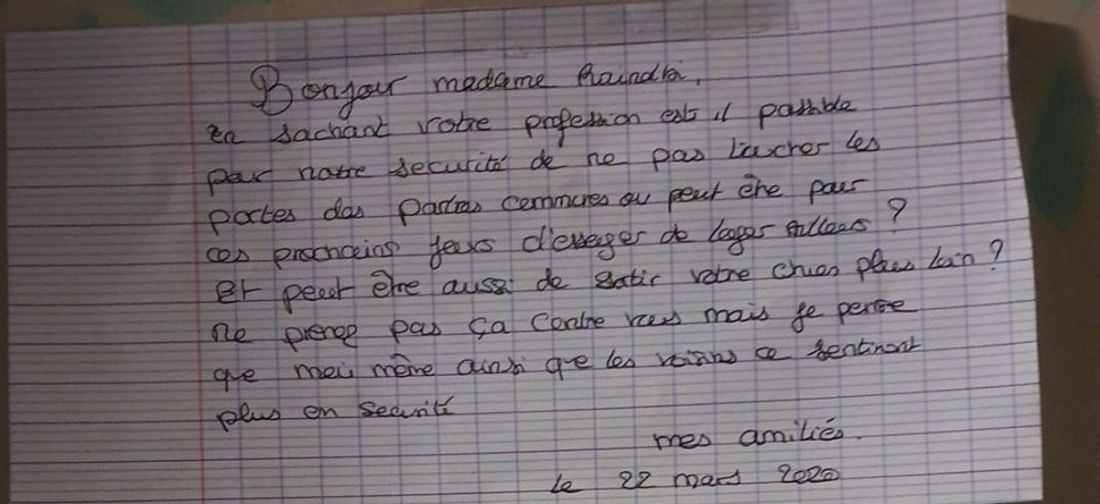 Bonjour madame
en sachant votre profession est il possible
pour notre securité de ne pas toucher les
portes des parties communes ou peut être pour
ces prochains jours d'esseyer de loger ailleurs ?
Et peut être aussi de sortir votre chien plus loin ?
ne prenez pas ça contre vous mais je pense
que moi même ainsi que les voisins ce sentiront
plus en securité
mes amitiés.
le 22 mars 2020